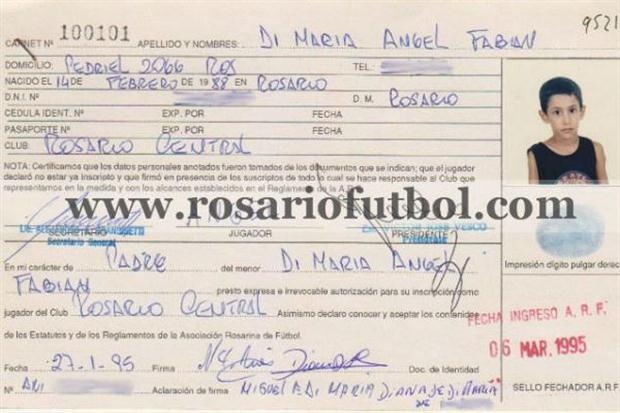 9521
CARNET Nº 100101 APELLIDO Y NOMBRES: DI MARIA ANGEL FABIAN
DOMICILIO: PEDRIEL 2066 ROS TEL:
NACIDO EL 14 DE FEBRERO DE 1988 EN ROSARIO
D.N.I. Nº D. M. ROSARIO
CEDULA IDENT. Nº EXP. POR FECHA
PASAPORTE Nº EXP. POR FECHA
CLUB: ROSARIO CENTRAL
NOTA: Certificamos que los datos personales anotados fueron tomados de los documentos que se indican; que el jugador
declaró no estar ya inscripto y que firmó en presencia de los suscriptos de todo lo cual se hace responsable al Club que
representamos en la medida y con los alcances establecidos en el Reglamento de la A.R.F.
www.rosariofutbol.com
SECRETARIO JUGADOR PRESIDENTE
Secretario General Presidente
En mi carácter de PADRE del menor DI MARIA ANGEL
FABIAN presto expresa e irrevocable autorización para su inscripción como
jugador del Club ROSARIO CENTRAL Asimismo declaro conocer y aceptar los contenidos
de los Estatutos y de los Reglamentos de la Asociación Rosarina de Fútbol.
Fecha 27-1-95 Firma Doc. de Identidad
Nº DNI Aclaración de firma MIGUEL A. DI MARIA DIANA DE DI MARIA
Impresión dígito pulgar derec
FECHA INGRESO A. R. F.
06 MAR. 1995
SELLO FECHADOR A.R.F.